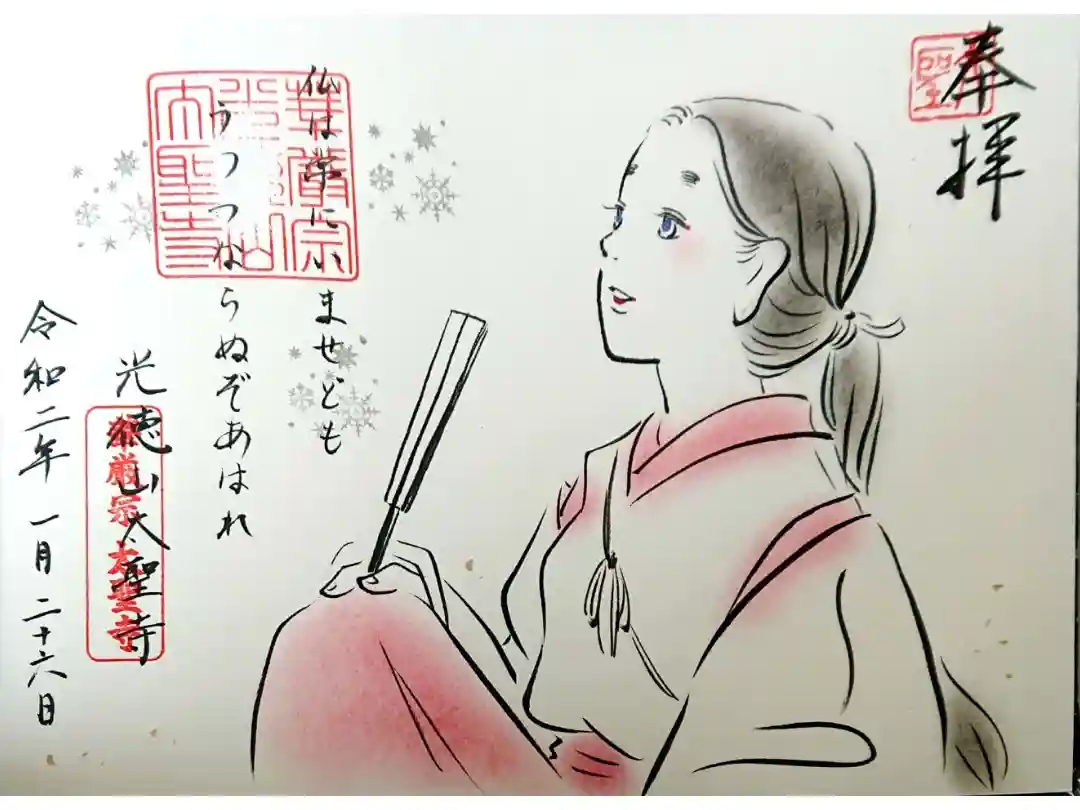 奉拝
仏は常にいませども
うつつならぬぞあはれ
光徳山大聖寺
華厳宗 大聖寺
令和二年 一月 二十六日